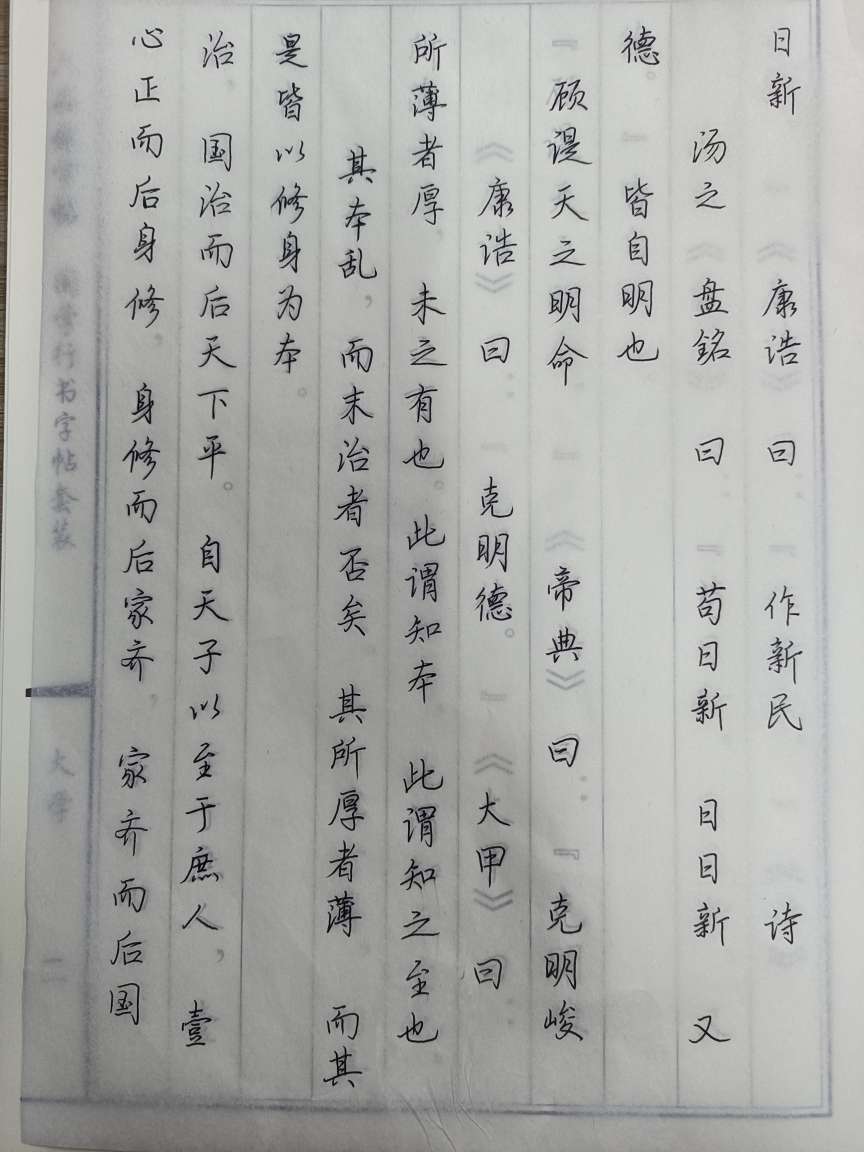 国学行书字帖套装
大学
二
心正而后身修，身修而后家齐，家齐而后国
治，国治而后天下平。自天子以至于庶人，壹
是皆以修身为本。
其本乱，而末治者否矣 其所厚者薄 而其
所薄者厚，未之有也。此谓知本 此谓知之至也
《康诰》曰：『克明德。』《大甲》曰：
『顾𬤊天之明命』《帝典》曰：『克明峻
德。』皆自明也
汤之《盘銘》曰：『苟日新 日日新 又
日新』《康诰》曰：『作新民』《诗》